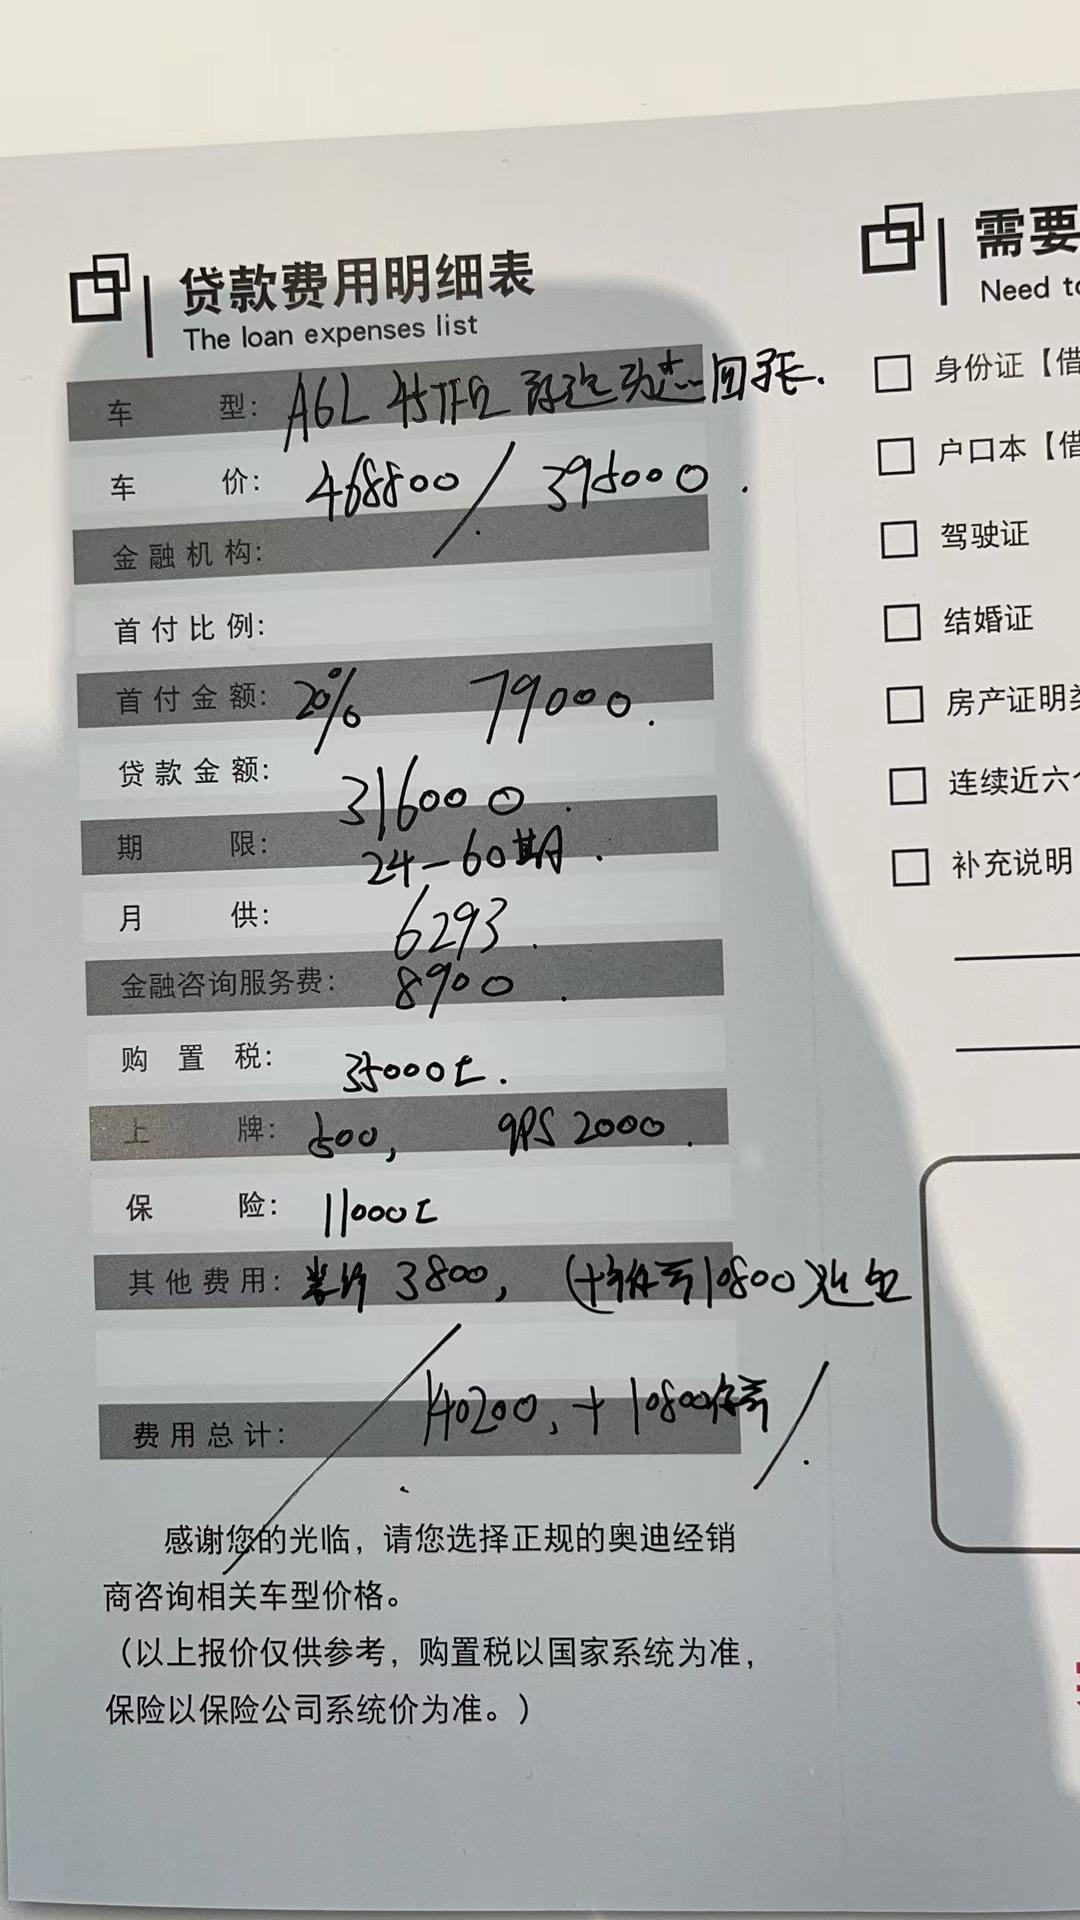 贷款费用明细表
The loan expenses list
车型: A6L 45TFSI 臻选动感回张.
车价: 468800 / 395000.
金融机构:
首付比例:
首付金额: 20% 79000.
贷款金额: 316000.
期限: 24-60期.
月供: 6293.
金融咨询服务费: 8900.
购置税: 35000±.
上牌: 500, GPS 2000.
保险: 11000±
其他费用: 3800, (+10800)
费用总计: 140200, + 10800
感谢您的光临，请您选择正规的奥迪经销
商咨询相关车型价格。
（以上报价仅供参考，购置税以国家系统为准，
保险以保险公司系统价为准。）
需要
Need to
身份证【借
户口本【借
驾驶证
结婚证
房产证明类
连续近六个
补充说明